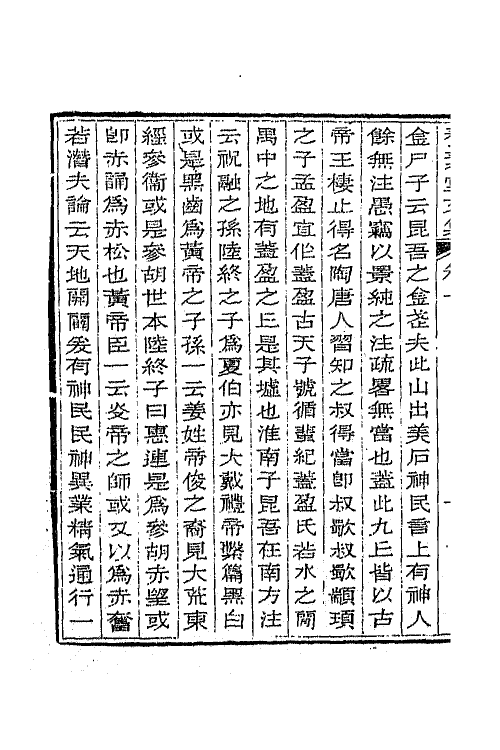 金尸子云昆吾之金蓋夫此山出美石神民書上有神人
餘無注愚竊以景純之注疏畧無當也蓋此九丘皆以古
帝王棲止得名陶唐人習知之叔得當卽叔歜叔歜顓頊
之子孟盈宜作蓋盈古天子號循蜚紀蓋盈氏若水之間
禺中之地有蓋盈之丘是其墟也淮南子昆吾在南方注
云祝融之孫陸終之子爲夏伯亦見大戴禮帝繫篇黑白
或是黑齒爲黃帝之子孫一云姜姓帝俊之裔見大荒東
經參衞或是參胡世本陸終子曰惠連是爲參胡赤望或
卽赤誦爲赤松也黃帝臣一云炎帝之師或又以爲赤奮
若潛夫論云天地開闢爰有神民民神異業精氣通行一